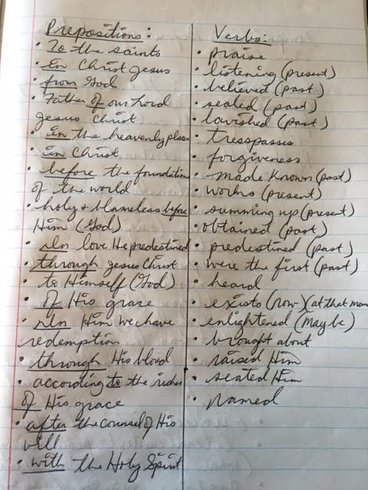 Prepositions:
• To the saints
• In Christ Jesus
• from God
• Father of our Lord
Jesus Christ
• in the heavenly places
• in Christ
• before the foundation
of the world
• holy + blameless before
Him (God)
• In love He predestined
• through Jesus Christ
• to Himself (God)
• of His grace
• In Him we have
redemption
• through His blood
• according to the riches
of His grace
• after the counsel of His
will
• with the Holy Spirit
Verbs:
• praise
• listening (present)
• believed (past)
• sealed (past)
• lavished (past)
• tresspasses
• forgiveness
• made known (past)
• works (present)
• summing up (present)
• obtained (past)
• predestined (past)
• were the first (past)
• heard
• exists (now) (at that mom
• enlightened (may be)
• brought about
• raised Him
• seated Him
• named